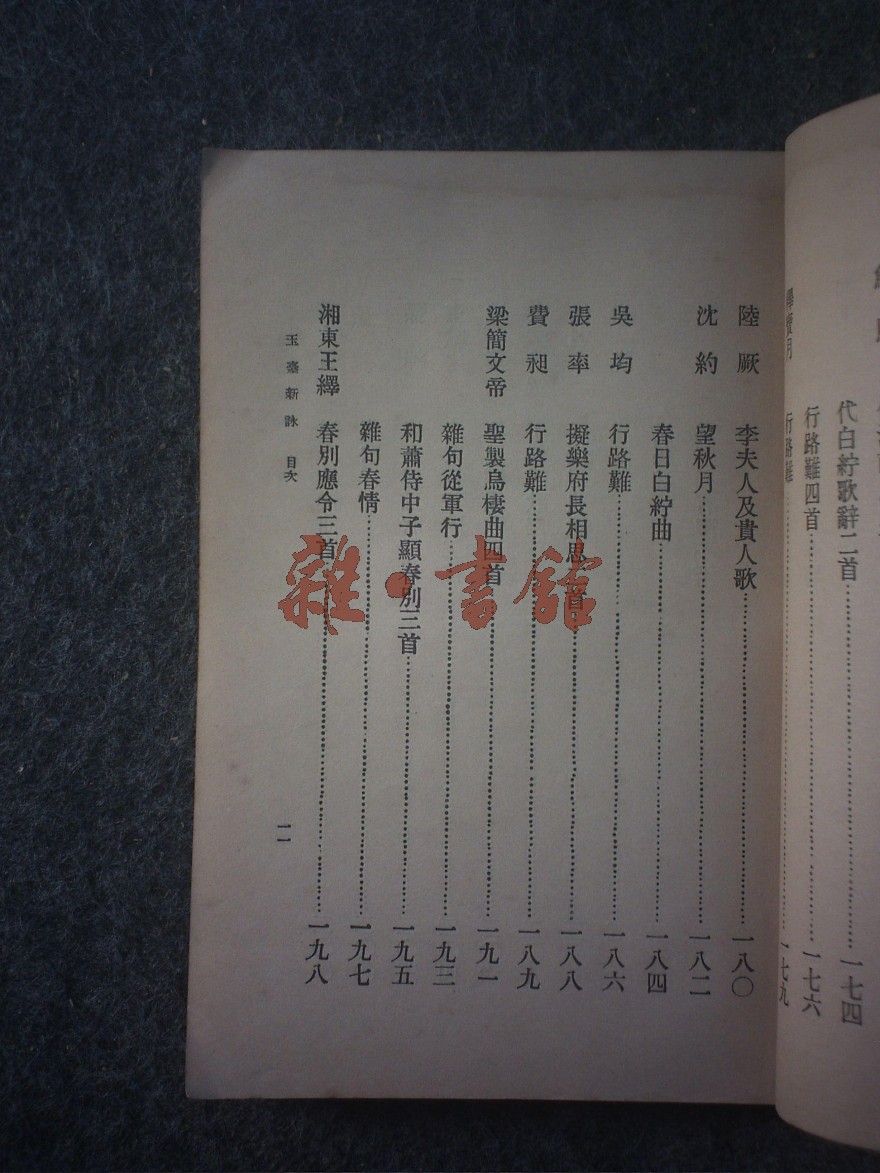 代白紵歌辭二首 一七四
行路難四首 一七六
行路難 一七九
陸厥 李夫人及貴人歌 一八〇
沈約 望秋月 一八二
春日白紵曲 一八四
吳均 行路難 一八六
張率 擬樂府長相思二首 一八八
費昶 行路難 一八九
梁簡文帝 聖製烏棲曲四首 一九一
雜句從軍行 一九三
和蕭侍中子顯春別三首 一九五
雜句春情 一九七
湘東王繹 春別應令三首 一九八
玉臺新詠 目次
一一
雜·書館